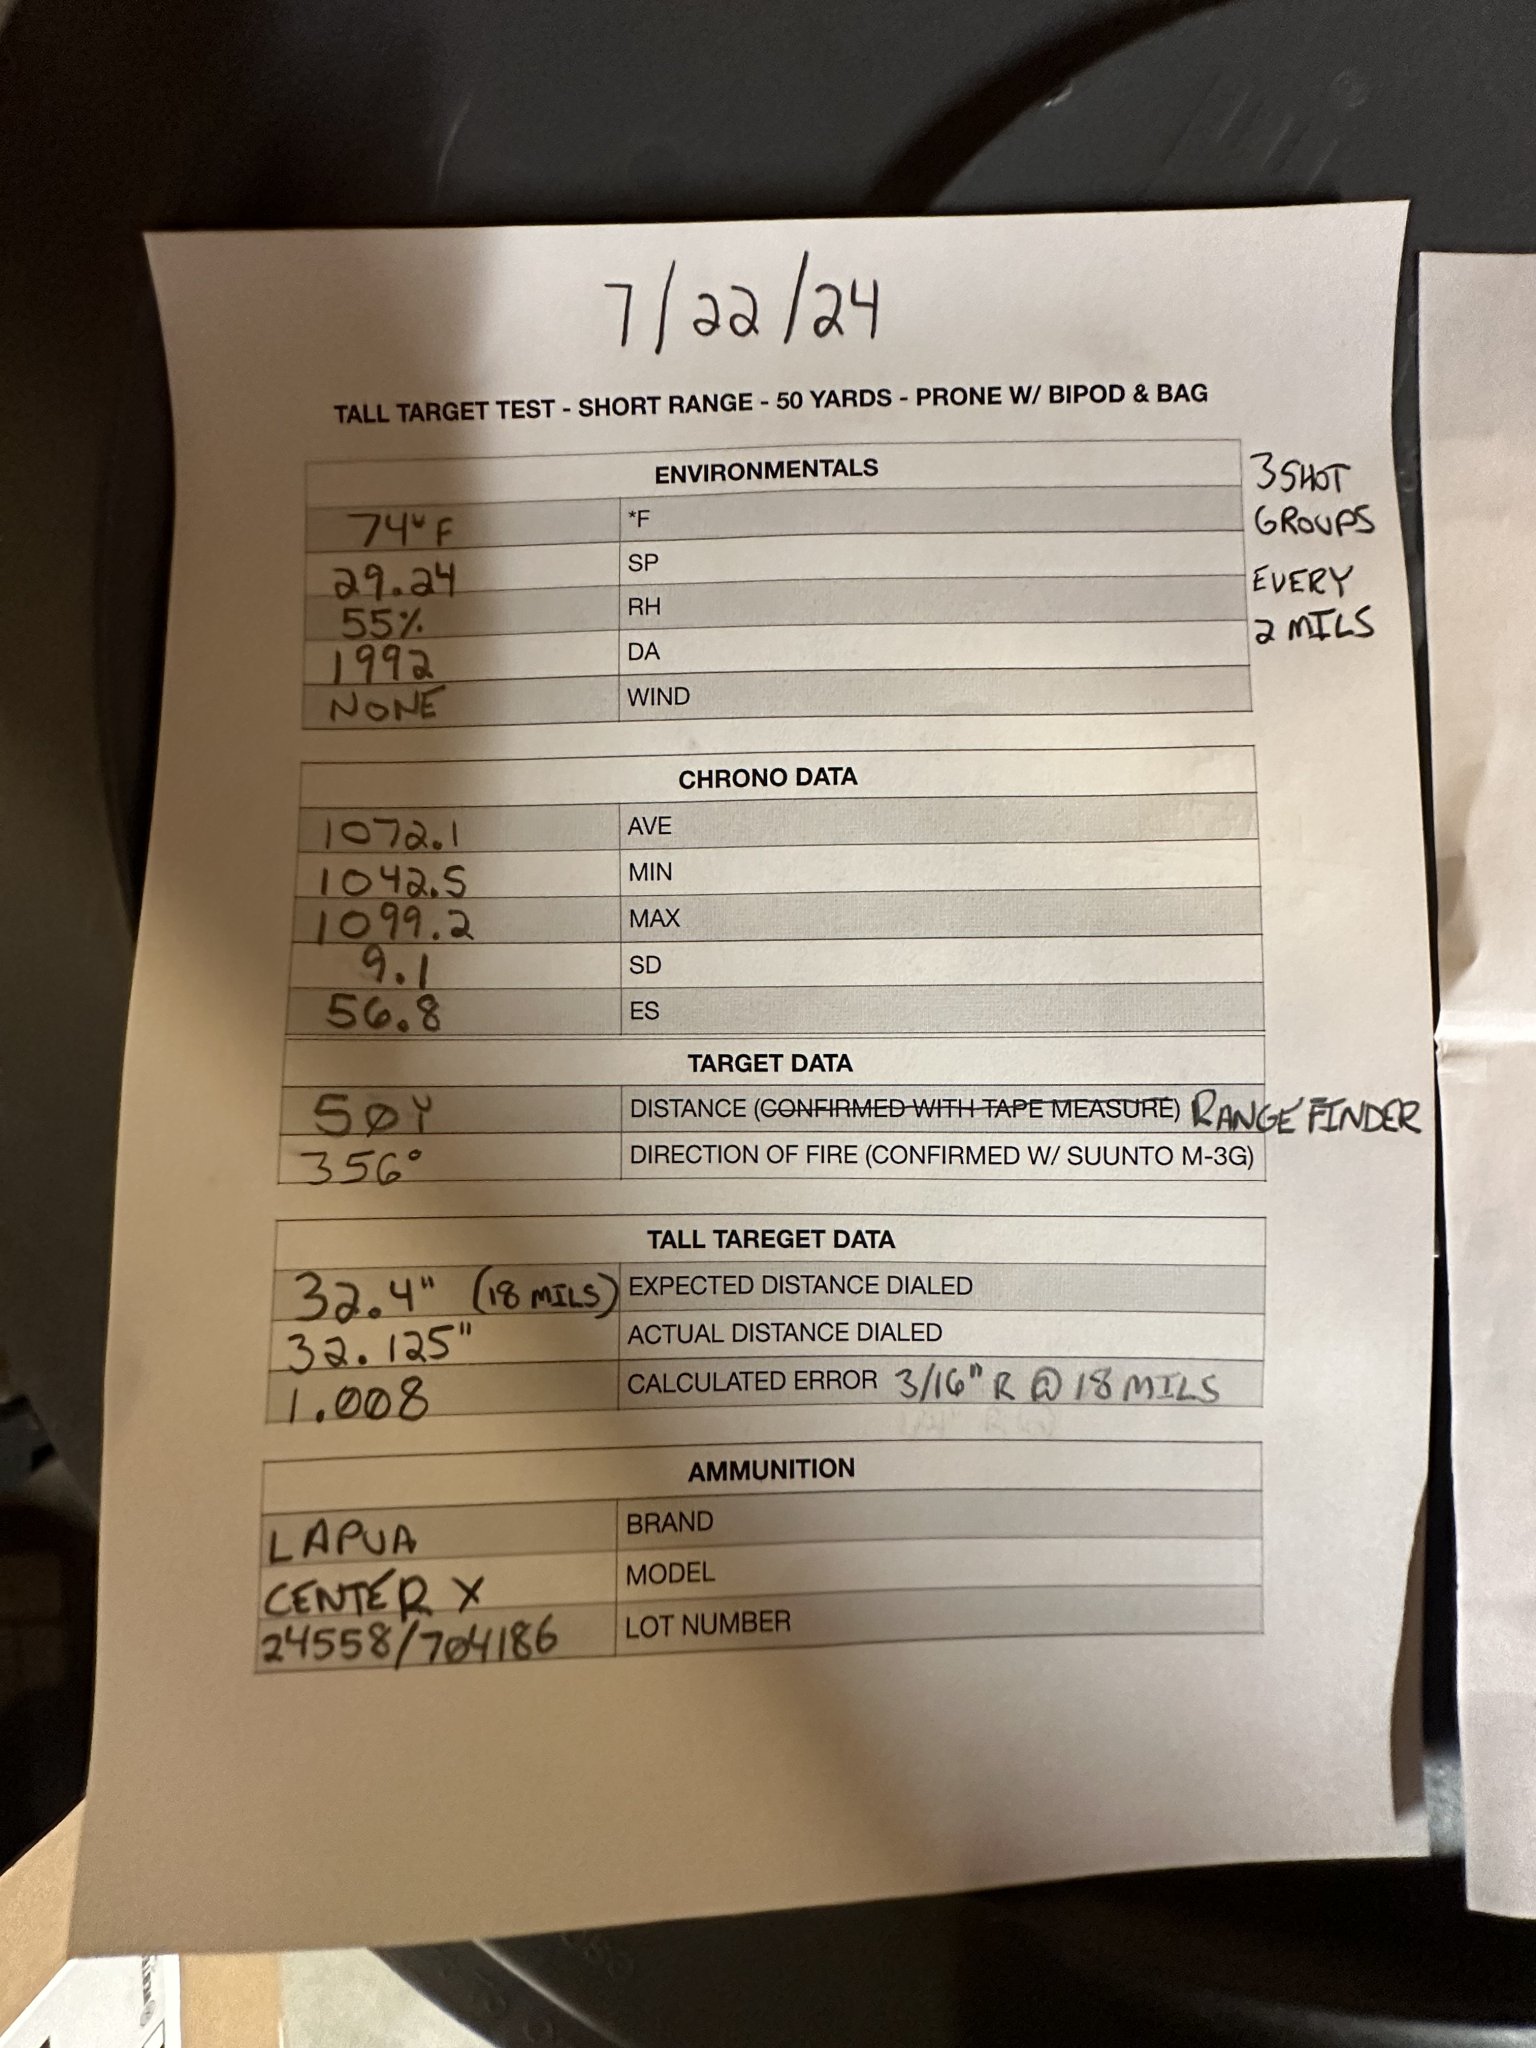 7/22/24
TALL TARGET TEST - SHORT RANGE - 50 YARDS - PRONE W/ BIPOD & BAG
ENVIRONMENTALS
3 SHOT
GROUPS
EVERY
2 MILS
74°F *F
29.24 SP
55% RH
1992 DA
NONE WIND
CHRONO DATA
1072.1 AVE
1042.5 MIN
1099.2 MAX
9.1 SD
56.8 ES
TARGET DATA
50Y DISTANCE (CONFIRMED WITH TAPE MEASURE) RANGE FINDER
356° DIRECTION OF FIRE (CONFIRMED W/ SUUNTO M-3G)
TALL TAREGET DATA
32.4" (18 MILS) EXPECTED DISTANCE DIALED
32.125" ACTUAL DISTANCE DIALED
1.008 CALCULATED ERROR 3/16" R @ 18 MILS
AMMUNITION
LAPUA BRAND
CENTER X MODEL
24558/704186 LOT NUMBER